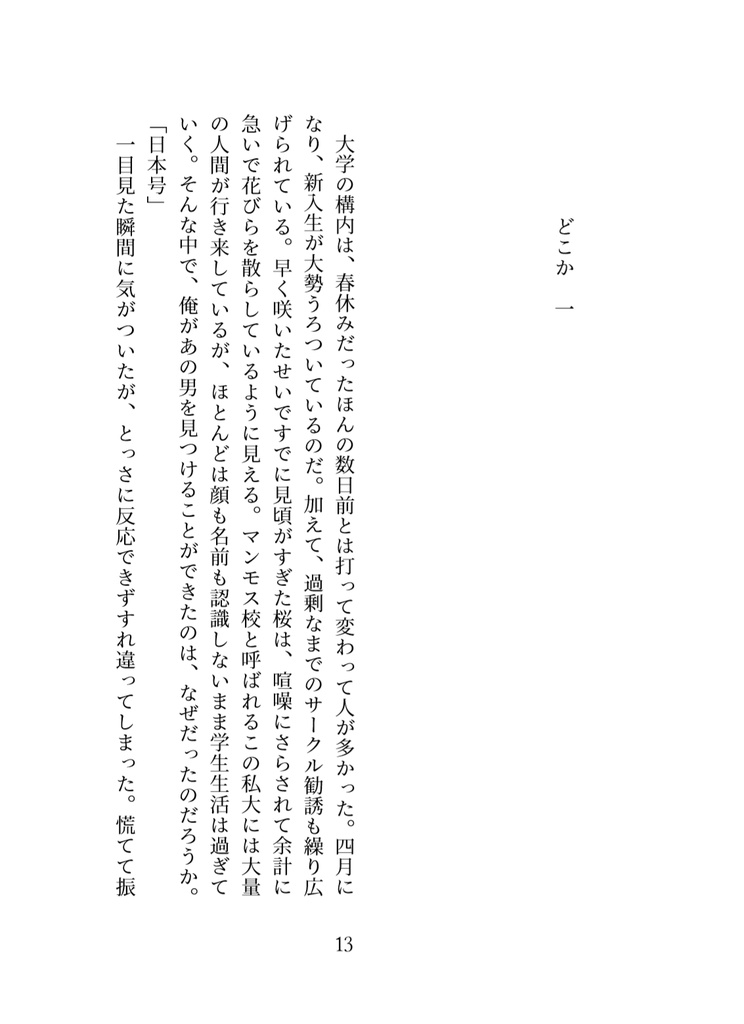 どこか　一
　大学の構内は、春休みだったほんの数日前とは打って変わって人が多かった。四月に
なり、新入生が大勢うろついているのだ。加えて、過剰なまでのサークル勧誘も繰り広
げられている。早く咲いたせいですでに見頃がすぎた桜は、喧噪にさらされて余計に
急いで花びらを散らしているように見える。マンモス校と呼ばれるこの私大には大量
の人間が行き来しているが、ほとんどは顔も名前も認識しないまま学生生活は過ぎて
いく。そんな中で、俺があの男を見つけることができたのは、なぜだったのだろうか。
「日本号」
　一目見た瞬間に気がついたが、とっさに反応できずすれ違ってしまった。慌てて振
13